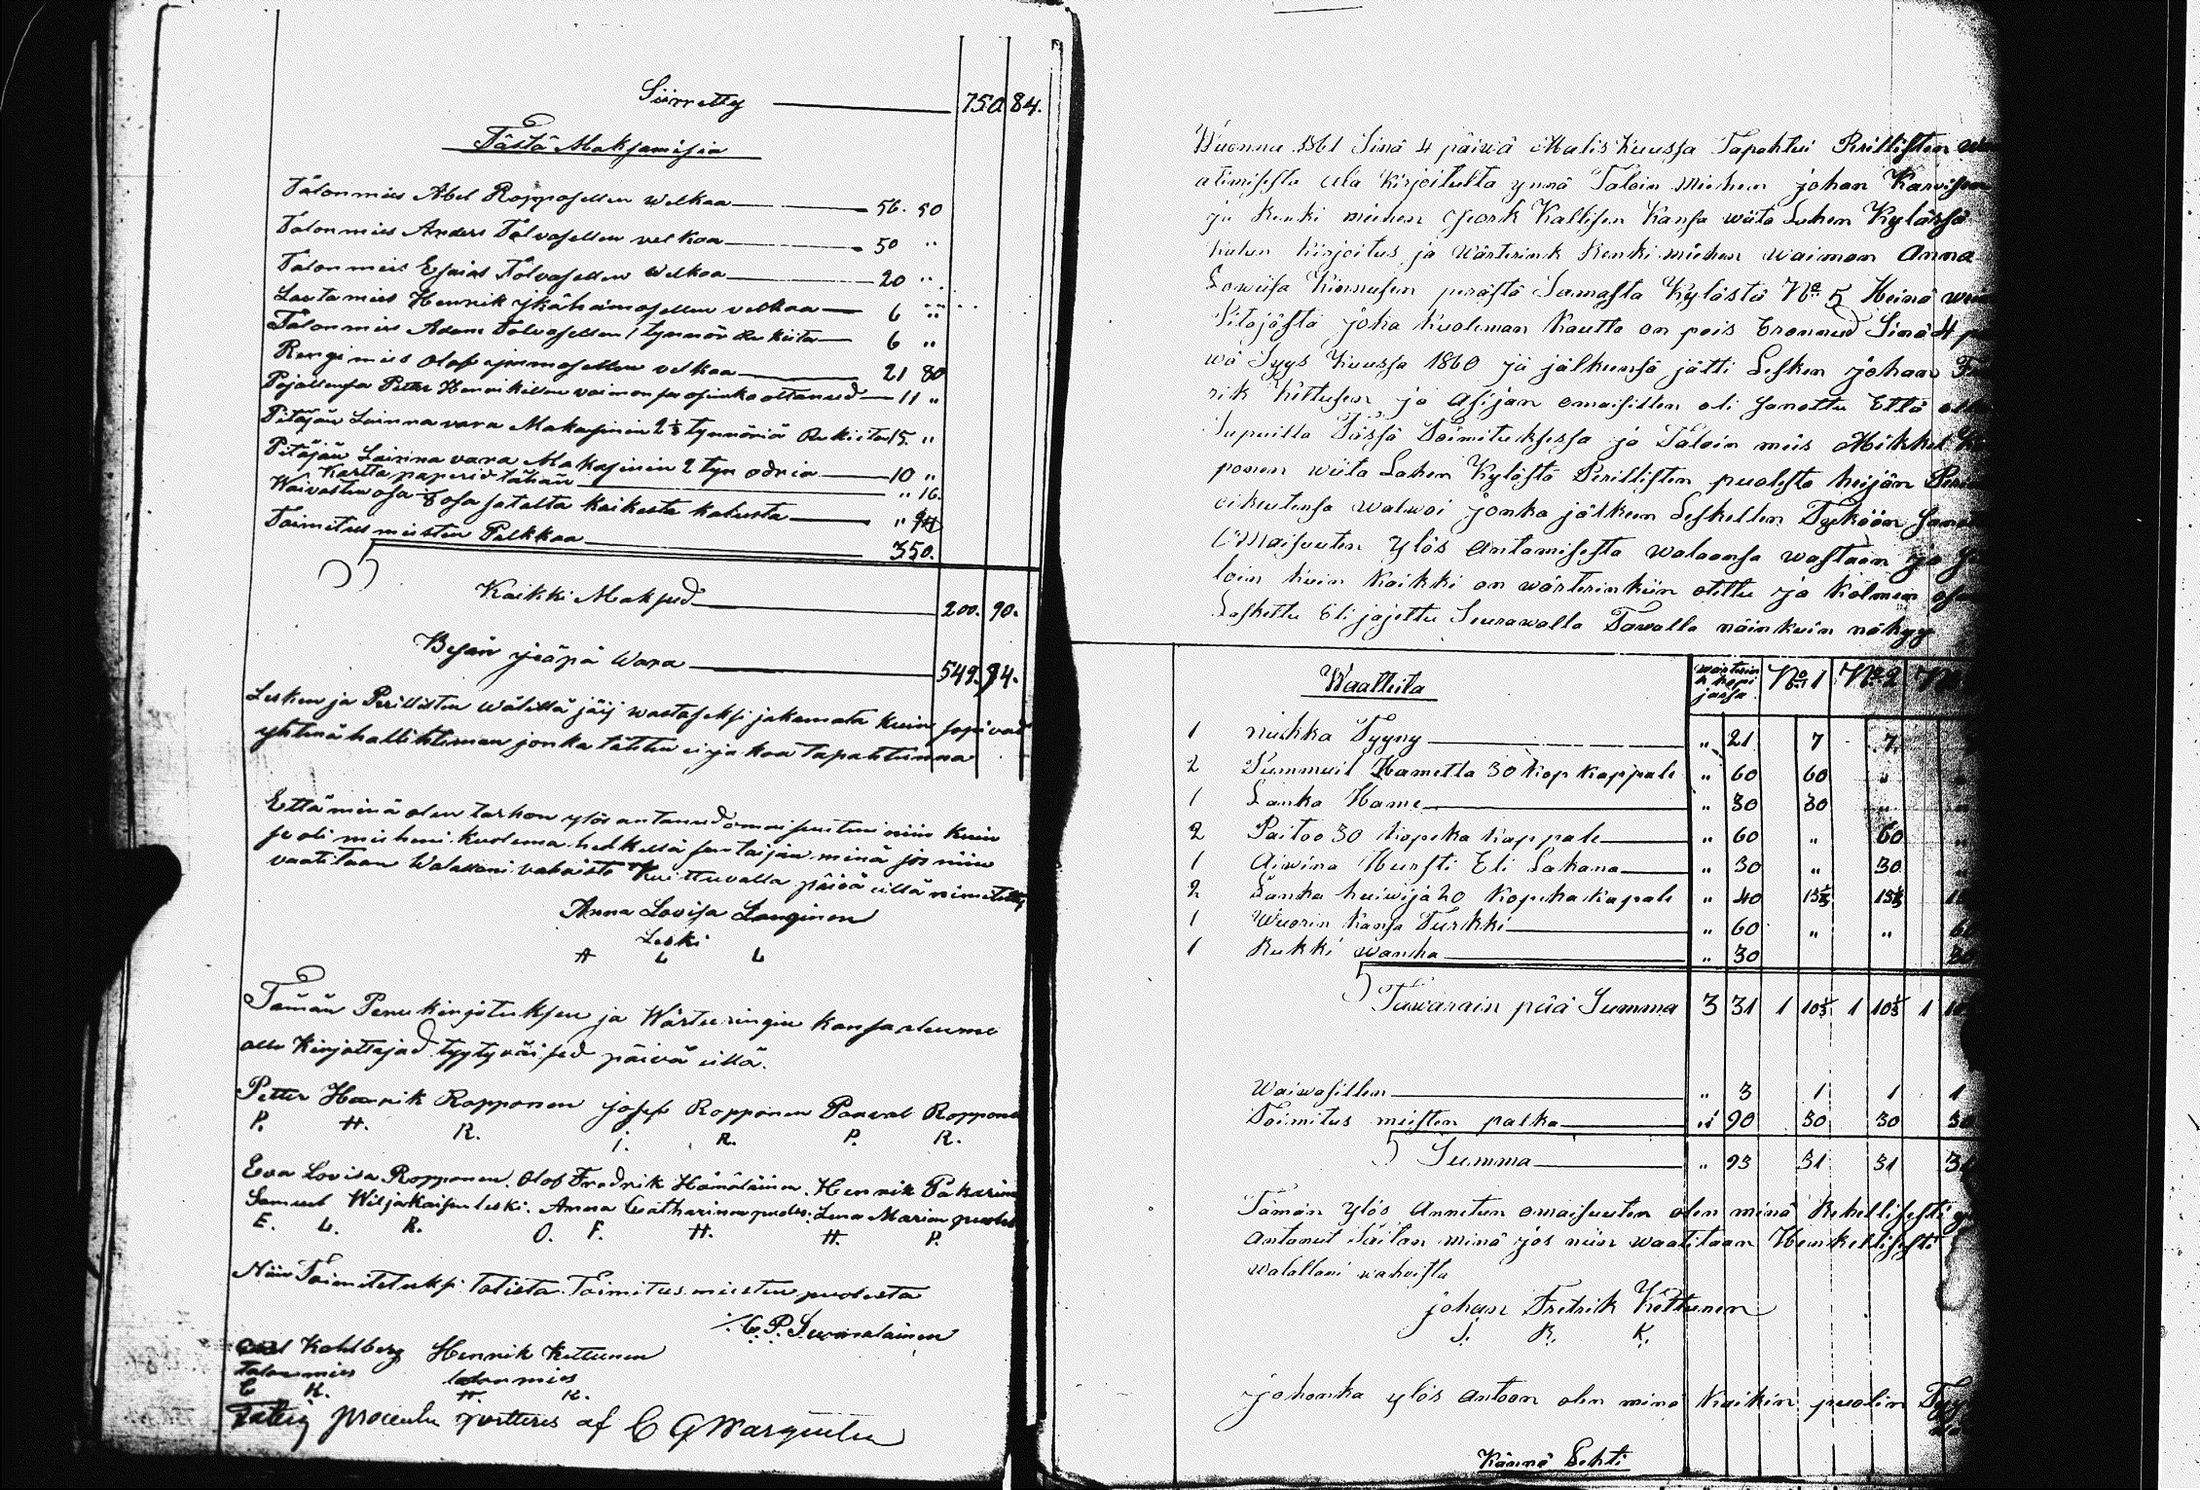 Siirretty — 750 84.
Tästä Maksamisia
Talonmies AbelRopposellen welkaa — 56. 50
Talonmies Anders Tolvasellen velkaa — 50 "
Talonmies Esaias Tolvasellen welkaa — 20 "
Lautamies Henrik Ikähämosellen velkaa — 6 "
Talonmies Adam Tolvasellen 1 tynnör Rukiita — 6 "
Rengimies Olof velkaa — 21 80
Pojallensa Petter Henrikillen vaimonsa osinko ottanud — 11 "
Pitäjän Lainna vara Makasinin 2 1/2 tynnöriä Rukiita 15 "
Pitäjän Lainna vara Makasinin 2 tyn odria — 10 "
Kartta paperid tähän — " 16.
Waivasten osa osa satalta kaikesta kalusta — "
Toimitus miesten Palkkaa — 350.
Kaikki Maksud — 200. 90.
Besän jääpä Wara — 549. 94.
Lesken ja Perillisten wälillä jäij wastaseksi jakamata kuin sopivad
yhtenä hallihteman jonka tähten ei ja koa tapahtunna
Että minä olen tarkon ylös antanud omaisuuteni niin kuin
se oli mieheni kuolema hetkellä sen taijan minä jos niin
vaatitaan Walallani vahvista Kuittuvalla päivä ällä nimitetty
Anna Lovisa Langinen
Leski
A L L
Tämän Peru kirjoituksen ja Wärteeringin kansa olemme
alle Kirjottajad tyytyväised päivä ällä.
Petter Henrik Ropponen josef Ropponen Paavel Ropponen
P. H. R. j. R. P. R.
Eva Lovisa Ropponen. Olof Fredrik Hämäläinen. Henrik Pakarin
Samuel Wiljakaisen leski. Anna Catharinan puoles. Lena Marian puoles
E. L. R. O. F. H. H. P.
Niin Toimitetuksi Totista Toimitus miesten puolesta
C. P. Suomalainen
Carl Kohlberg Henrik Kettunen
talon mies talon mies
C K. H. K.
af C G Warquelin
Wuonna 1861 Sinä 4 päiwä Maliskuussa Tapahtui Perillisten
atimisesta ala Kirjoitulta ynnä Taloin Miehen johan Karvisen
ja Renki miehen Kallisen Kansa wiita Lahen Kylässä
kalun kirjoitus ja Wärterink Renki miehen waimon Anna
Lowisa Kinnusen perästä Samasta Kylästä No 5 Heinä
Pitäjästä joka kuoleman kautta on pois Eronnud Sinä 4
wä Syys kuussa 1860 ja jälkensä jätti Lesken johan
rik Kettusen ja Asijan omaisillen oli sanottu Että
Sapuilla Tässä Toimituksessa ja Taloin mies Mikkel
ponen wiita Lahen Kylästä Perillisten puolesta heijän
oikeutensa walwoi jonka jälkeen Leskellen Tyköön
Omaisuuten ylös Antamisesta walaansa wastaan ja
loin kuin Kaikki on wärterinkiin otettu ja kolmen
Laskettu Eli jajettu Seurawalla Tawalla näin kuin näkyy
Waatteita wärterin k kopi jassa No 1 No 2
1 nukka Tyyny — " 21 7 7
2 Summuil Hametta 30 kop kappale " 60 60 "
1 Lanka Hame — " 30 30 "
2 Paitoo 30 kopeka kappale — " 60 " 60
1 Aiwina Hursti Eli Lakana — " 30 " 30
2 Lanka huiwija 20 Kopeka kapale " 40 13 1/3 13 1/3
1 Wuorin Kansa Turkki — " 60 " "
1 Rukki wanha — " 30
Tawarain pää Summa 3 31 1 10 1/3 1 10 1/3 1
Waiwasillen — " 3 1 1 1
Toimitus miesten palka — " 90 30 30 30
Summa — " 93 31 31
Tämän ylös Annetun omaisuuten olen minä Rehellisesti
Antanut Taitan minä jos niin waatitaan Henkellisesti
walallani wahvista
johan Fretrik Kettunen
J. R. K.
johonka ylös Antoon olen minä Kaikin puolin
Käännä Lehti